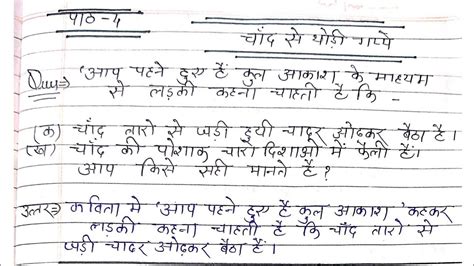 पाठ-4
चाँद से थोडी गप्पे
Que⇒ 'आप पहने हुए हैं कुल आकाश के माध्यम
से लड़की कहना चाहती है कि -
(क) चाँद तारो से जड़ी हुयी चादर ओढ़कर बैठा है।
(ख) चाँद की पोशाक चारो दिशाओ में फैली हैं।
आप किसे सही मानते हैं?
उत्तर⇒ कविता मे 'आप पहने हुए हैं कुल आकाश 'कहकर
लड़की कहना चाहती हैं कि चाँद तारो से
जड़ी चादर ओढ़कर बैठा हैं।